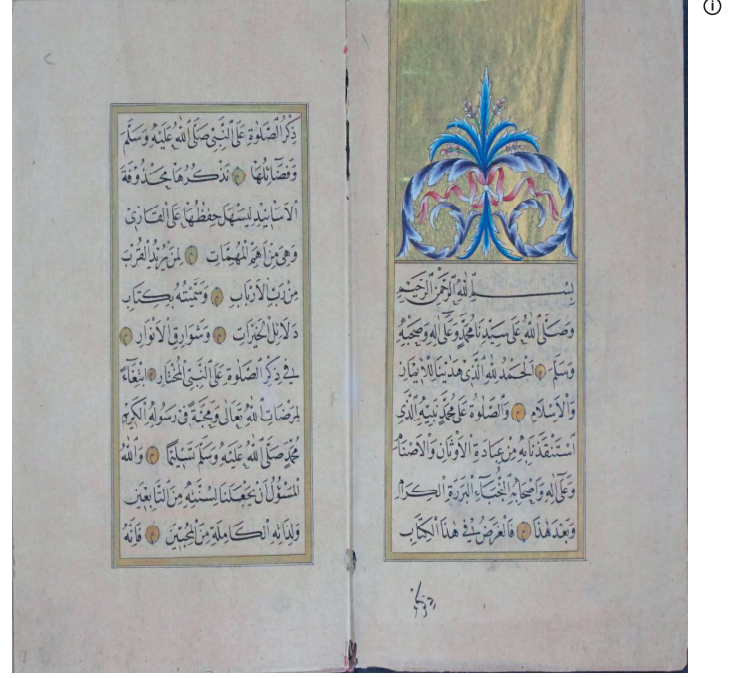 بِسْمِ اللّٰهِ الرَّحْمٰنِ الرَّحِيمِ
وَصَلَّى اللّٰهُ عَلٰى سَيِّدِنَا مُحَمَّدٍ وَعَلٰى اٰلِهِ وَصَحْبِهِ
وَسَلَّمَ اَلْحَمْدُ لِلّٰهِ الَّذِي هَدٰينَا لِلْاِيمَانِ
وَالْاِسْلَامِ وَالصَّلٰوةُ عَلٰى مُحَمَّدٍ نَبِيِّهِ الَّذِي
اسْتَنْقَذَنَا بِهِ مِنْ عِبَادَةِ الْاَوْثَانِ وَالْاَصْنَامِ
وَعَلٰى اٰلِهِ وَاَصْحَابِهِ النُّجَبَاءِ الْبَرَرَةِ الْكِرَامِ
وَبَعْدَ هٰذَا فَالْغَرَضُ فِي هٰذَا الْكِتَابِ
ذِكْرُ الصَّلٰوةِ عَلَى النَّبِيِّ صَلَّى اللّٰهُ عَلَيْهِ وَسَلَّمَ
وَفَضَائِلُهَا نَذْكُرُهَا مَحْذُوفَةَ
الْاَسَانِيدِ لِيَسْهُلَ حِفْظُهَا عَلَى الْقَارِئِ
وَهِيَ مِنْ اَهَمِّ الْمُهِمَّاتِ لِمَنْ يُرِيدُ الْقُرْبَ
مِنْ رَبِّ الْاَرْبَابِ وَسَمَّيْتُهُ بِكِتَابِ
دَلَائِلِ الْخَيْرَاتِ وَشَوَارِقِ الْاَنْوَارِ
فِي ذِكْرِ الصَّلٰوةِ عَلَى النَّبِيِّ الْمُخْتَارِ ابْتِغَاءً
لِمَرْضَاتِ اللّٰهِ تَعَالٰى وَمَحَبَّةً فِي رَسُولِهِ الْكَرِيمِ
مُحَمَّدٍ صَلَّى اللّٰهُ عَلَيْهِ وَسَلَّمَ تَسْلِيمًا وَاللّٰهُ
الْمَسْؤُلُ اَنْ يَجْعَلَنَا لِسُنَّتِهِ مِنَ التَّابِعِينَ
وَلِذَاتِهِ الْكَامِلَةِ مِنَ الْمُحِبِّينَ فَاِنَّهُ